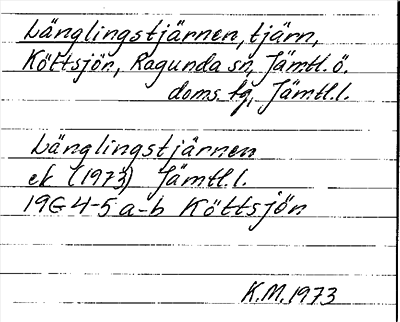 Länglingstjärnen, tjärn,
Köttsjön, Ragunda sn, Jämtl. ö.
doms. tg, Jämtl. l.
Länglingstjärnen
ek (1973) Jämtl. l.
19G 4-5 a-b Köttsjön
K.M. 1973